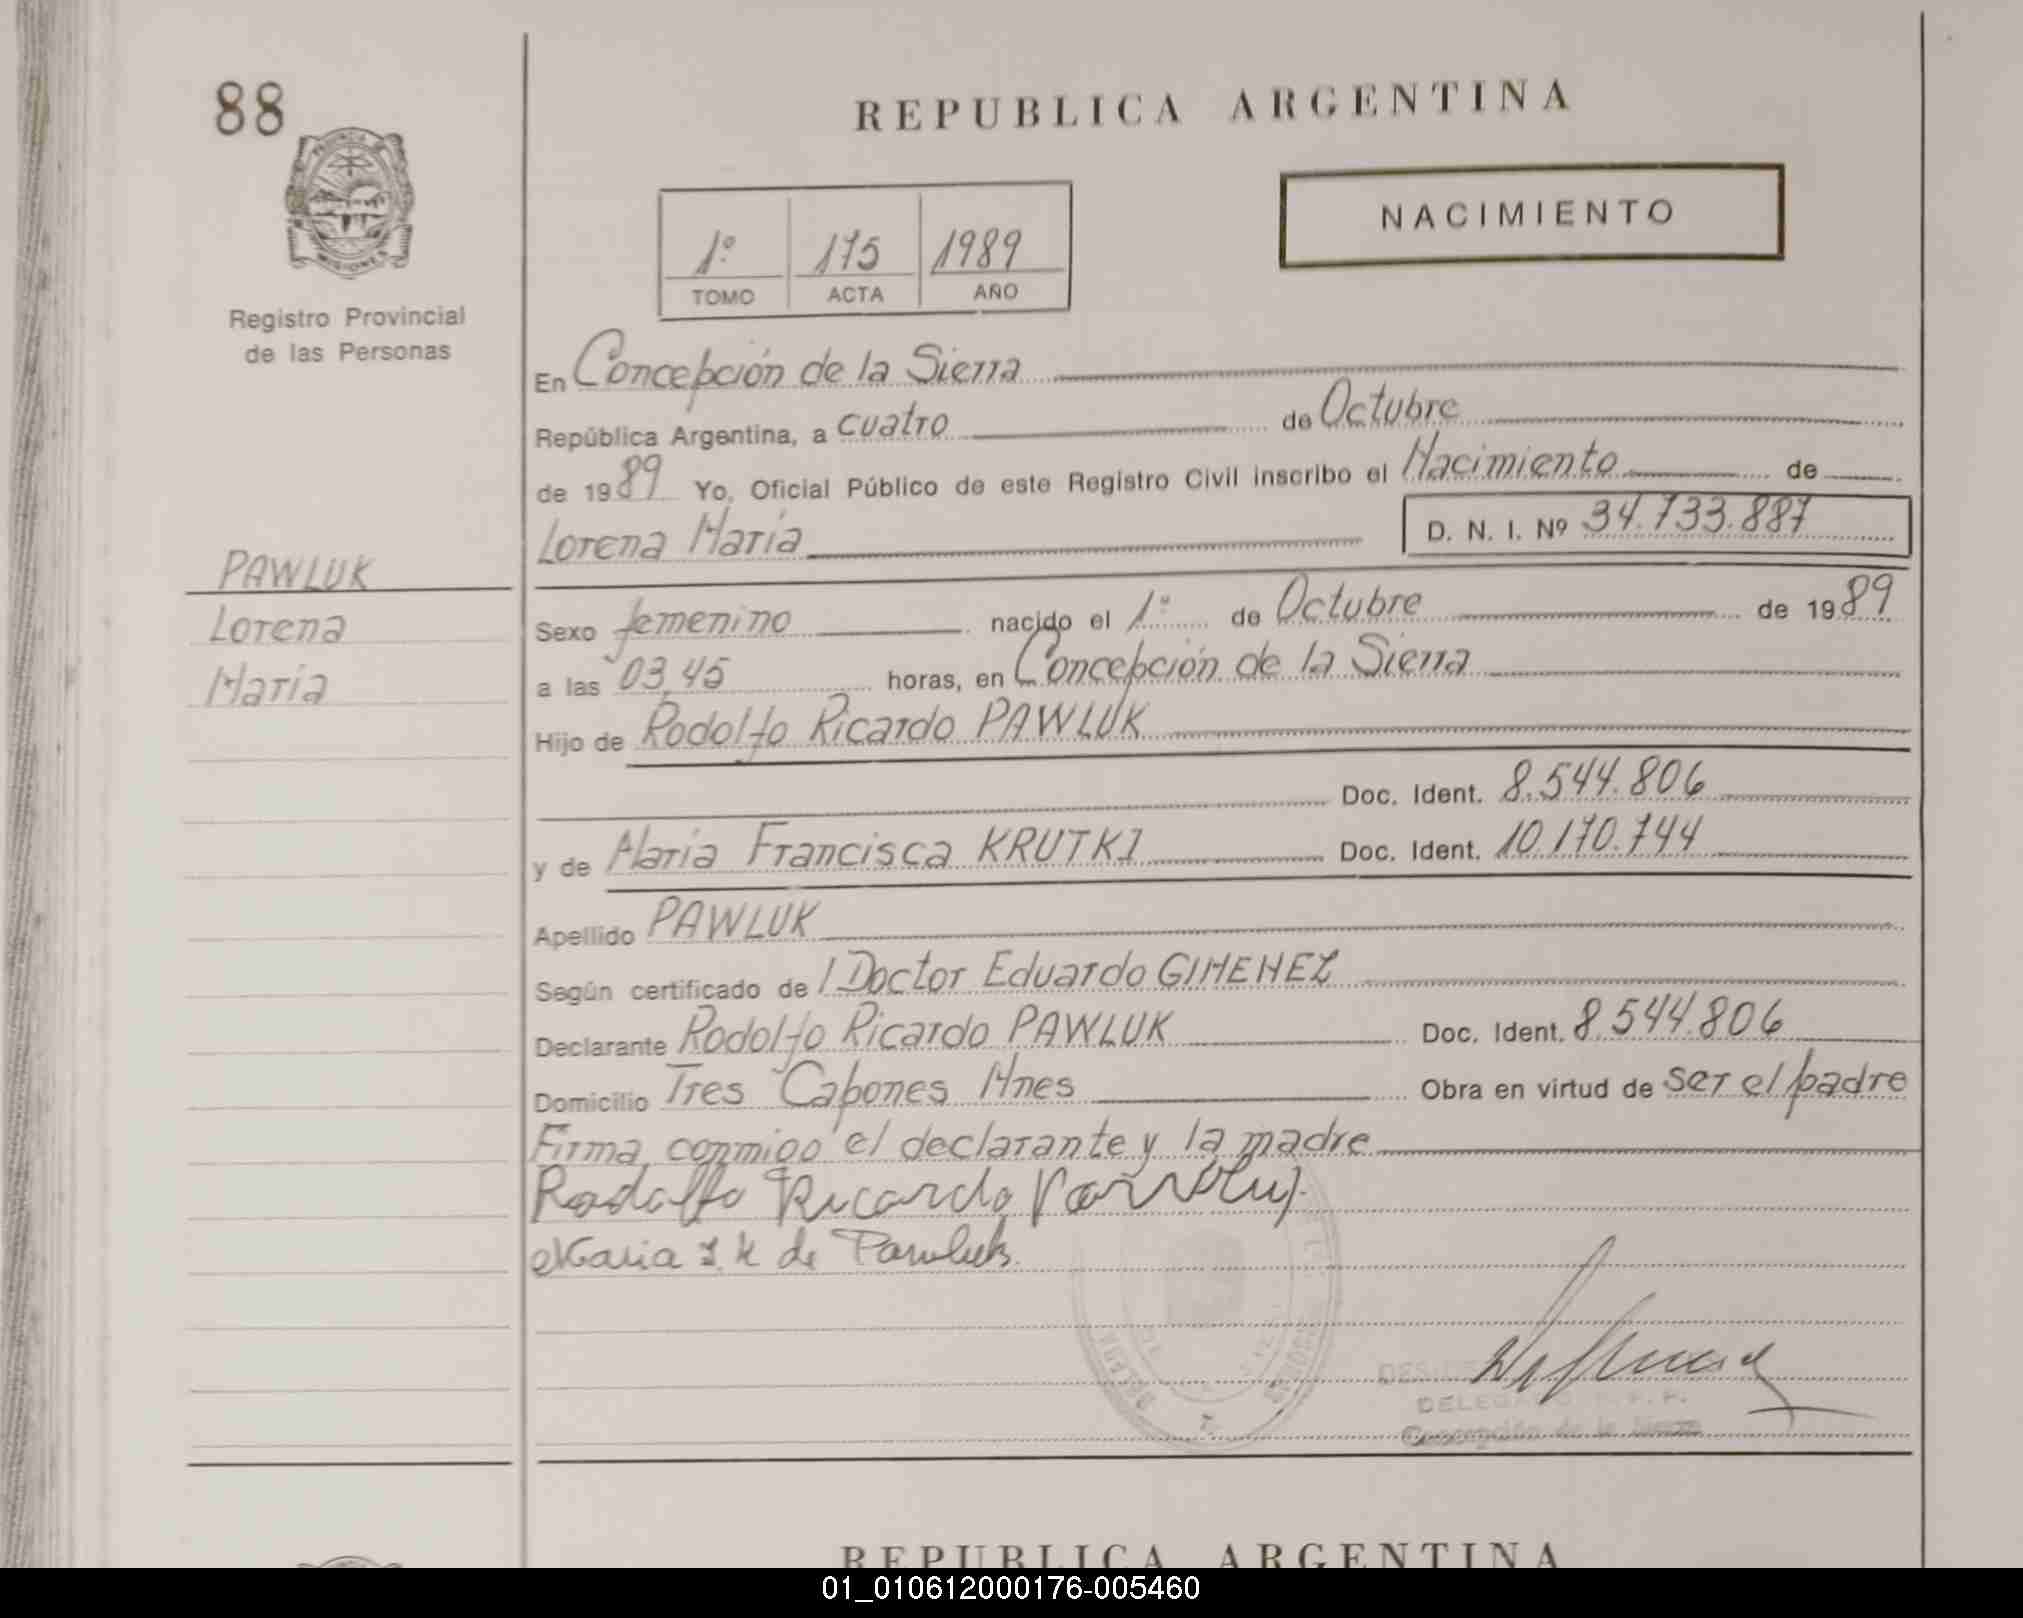 88
PROVINCIA DE
MISIONES
Registro Provincial
de las Personas
PAWLUK
Lorena
María
REPUBLICA ARGENTINA
NACIMIENTO
1º 175 1989
TOMO ACTA AÑO
En Concepción de la Sierra
República Argentina, a cuatro de Octubre
de 1989 Yo, Oficial Público de este Registro Civil inscribo el Nacimiento de
Lorena María D. N. I. Nº 34.733.887
Sexo femenino nacido el 1º de Octubre de 1989
a las 03,45 horas, en Concepción de la Sierra
Hijo de Rodolfo Ricardo PAWLUK
Doc. Ident. 8.544.806
y de María Francisca KRUTKI Doc. Ident. 10.170.744
Apellido PAWLUK
Según certificado de l Doctor Eduardo GIMENEZ
Declarante Rodolfo Ricardo PAWLUK Doc. Ident. 8.544.806
Domicilio Tres Capones Mnes Obra en virtud de ser el padre
Firma conmigo el declarante y la madre
Rodolfo Ricardo Pawluk
Maria F. K de Pawluk
DELEGADO R.P.P.
Concepción de la Sierra
REPUBLICA ARGENTINA
01_010612000176-005460